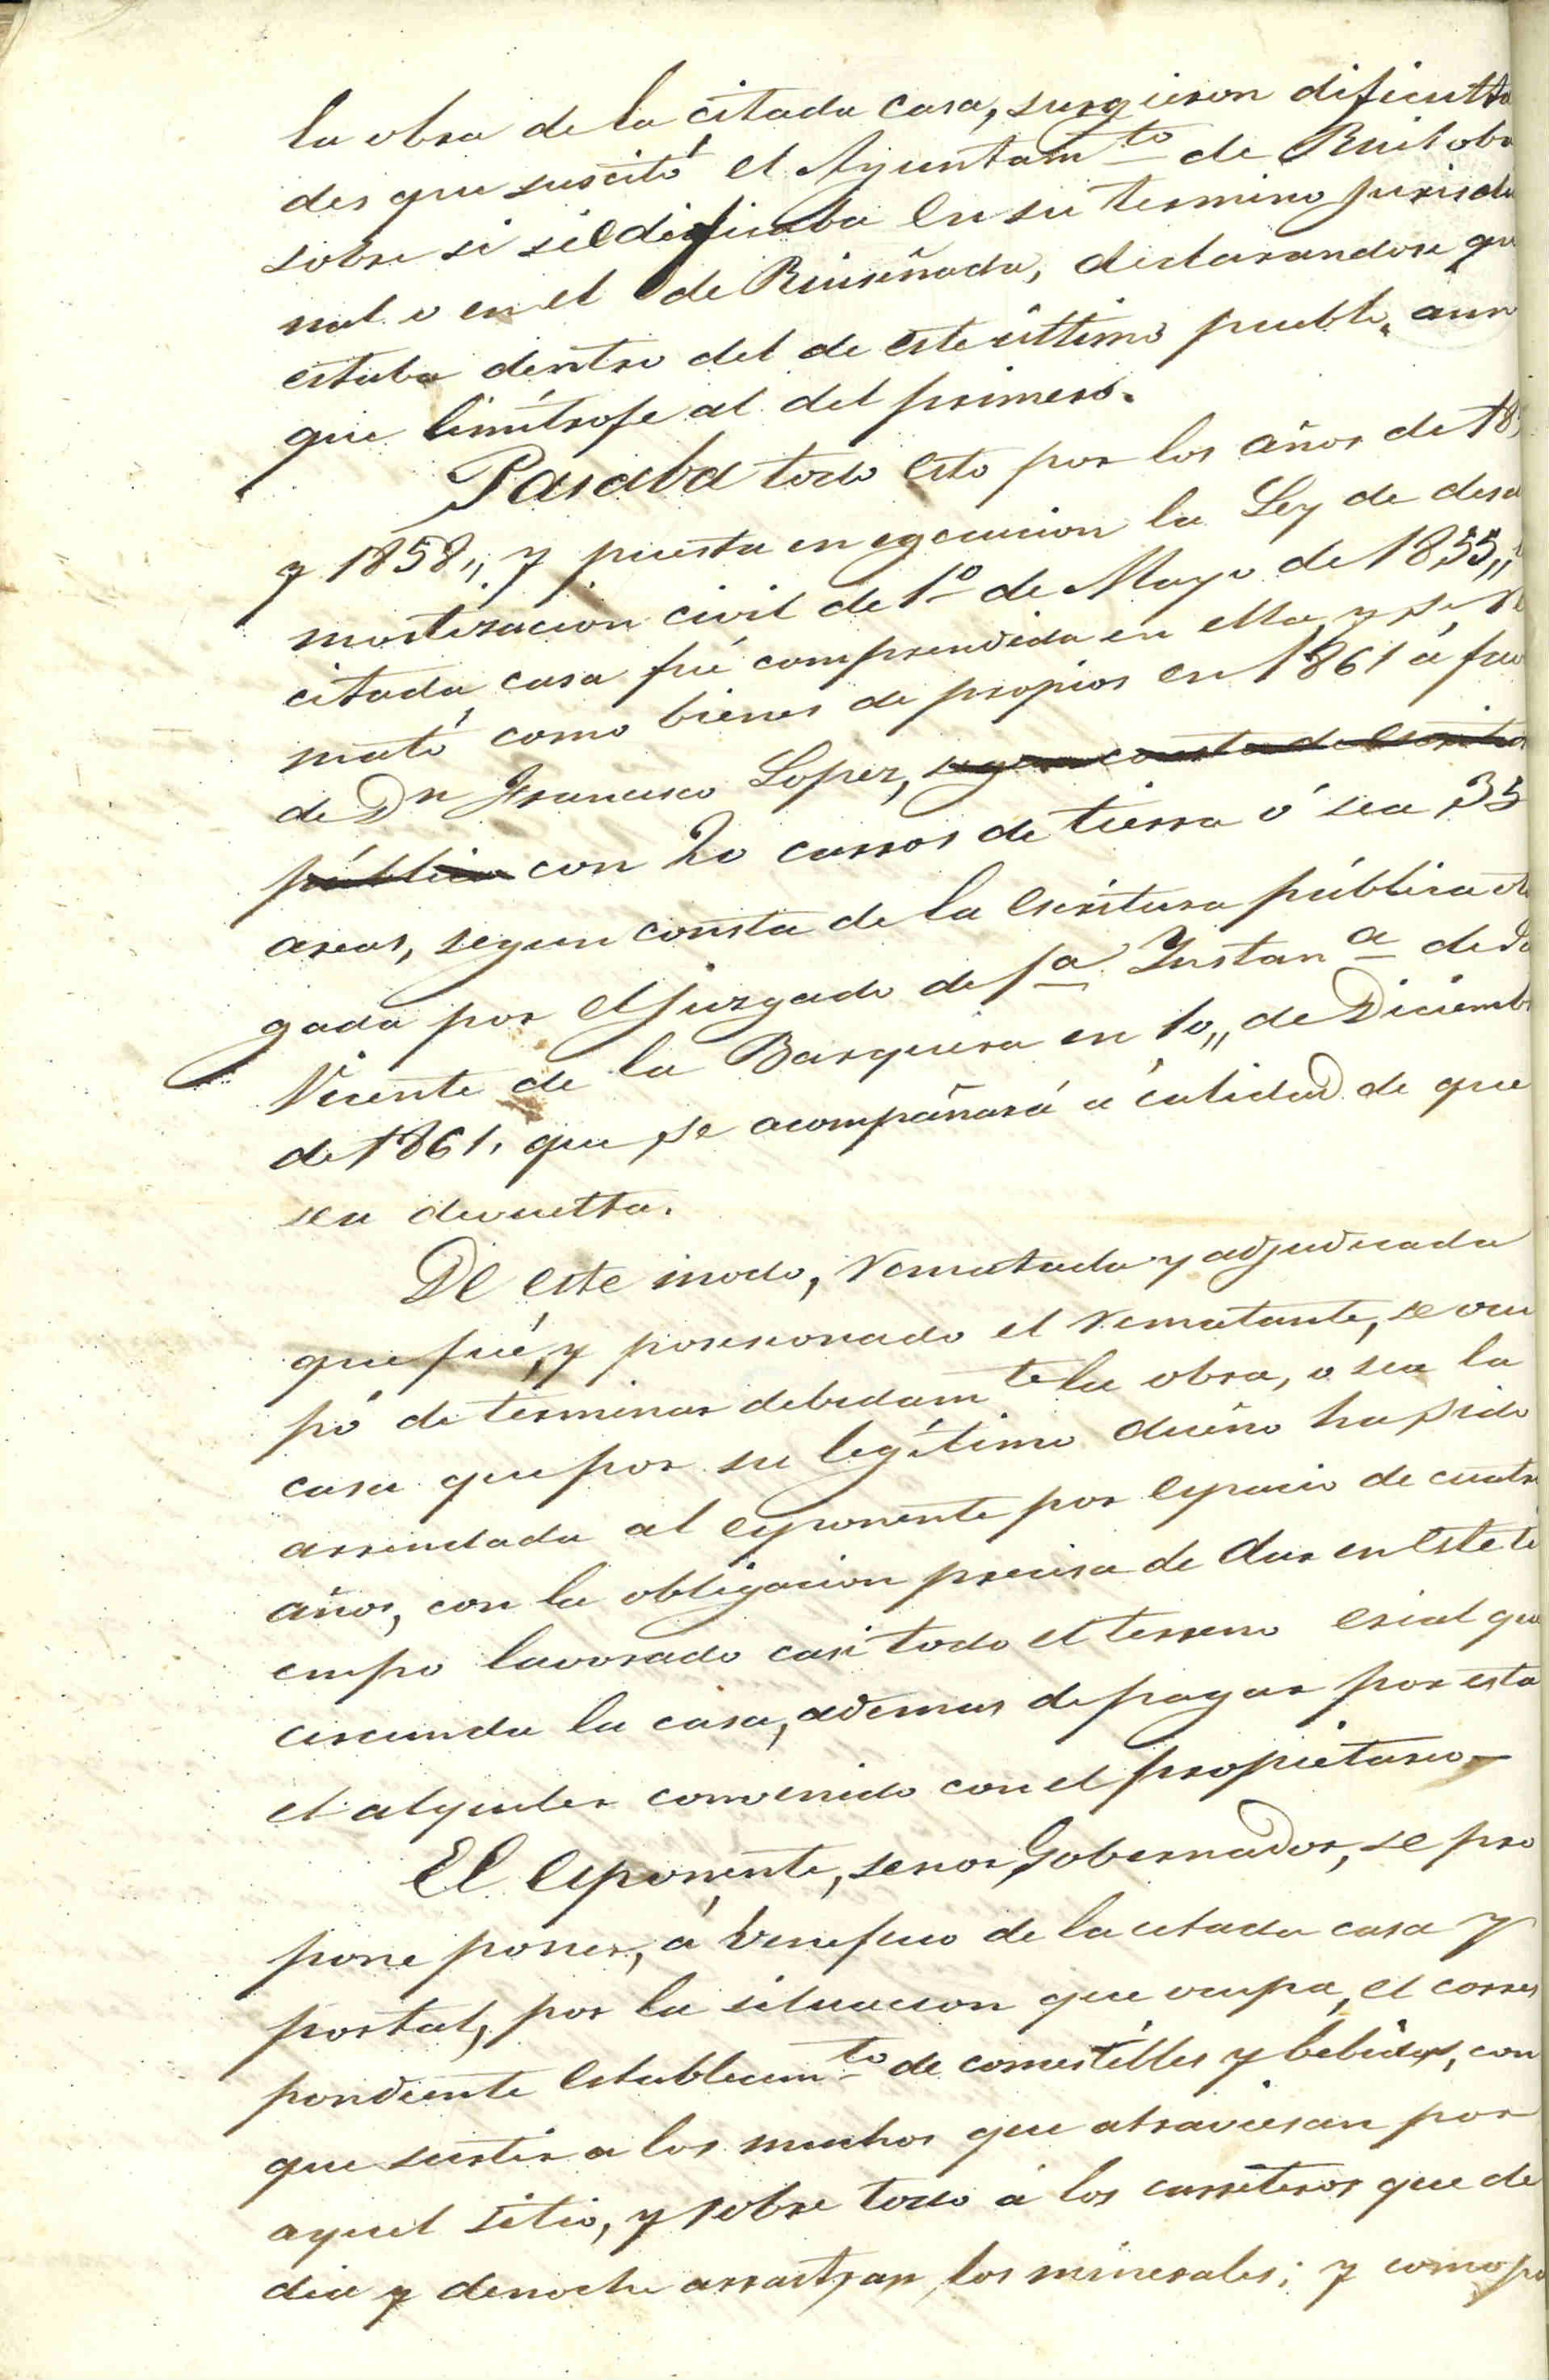 la obra de la citada casa, surgieron dificulta
des que suscitó el Ayuntam.to de Ruiloba
sobre si se edificaba en su termino jurisdic
nal o en el de Ruiseñada, declarandose que
estaba dentro del de este último pueblo, aun
que limítrofe al del primero.
Pasaba todo esto por los años de 185
y 1858,, y puesta en egecucion la Ley de desa
mortizacion civil de 1º de Mayo de 1855,,
citada casa fué comprendida en ella, y se re
mató como bienes de propios en 1861 á fav
de Dn Francisco Lopez, segun consta de escritu
pública con 20 carros de tierra ó sea 35
areas, segun consta de la escritura pública ot
gada por el juzgado de 1ª Instanª de Sa
Vicente de la Barquera en 10,, de Diciemb
de 1861, que se acompañará á calidad de que
sea devuelta.
De este modo, rematada y adjudicada
que fué, y posesionado el rematante, se ocu
pó de terminar debidamte la obra, o sea la
casa que por su legítimo dueño ha sido
arrendada al esponente por espacio de cuatro
años, con la obligacion precisa de dar en este ti
empo lavorado casi todo el terreno erial que
circunda la casa, ademas de pagar por esta
el alquiler convenido con el propietario.
El esponente, señor Gobernador, se pro
pone poner, á veneficio de la citada casa y
portal, por la situacion que ocupa, el corres
pondiente establecimto de comestibles y bebidas, con
que surtir a los muchos que atraviesan por
aquel sitio, y sobre todo á los carreteros que de
dia y denoche arrastran los minerales; y como po